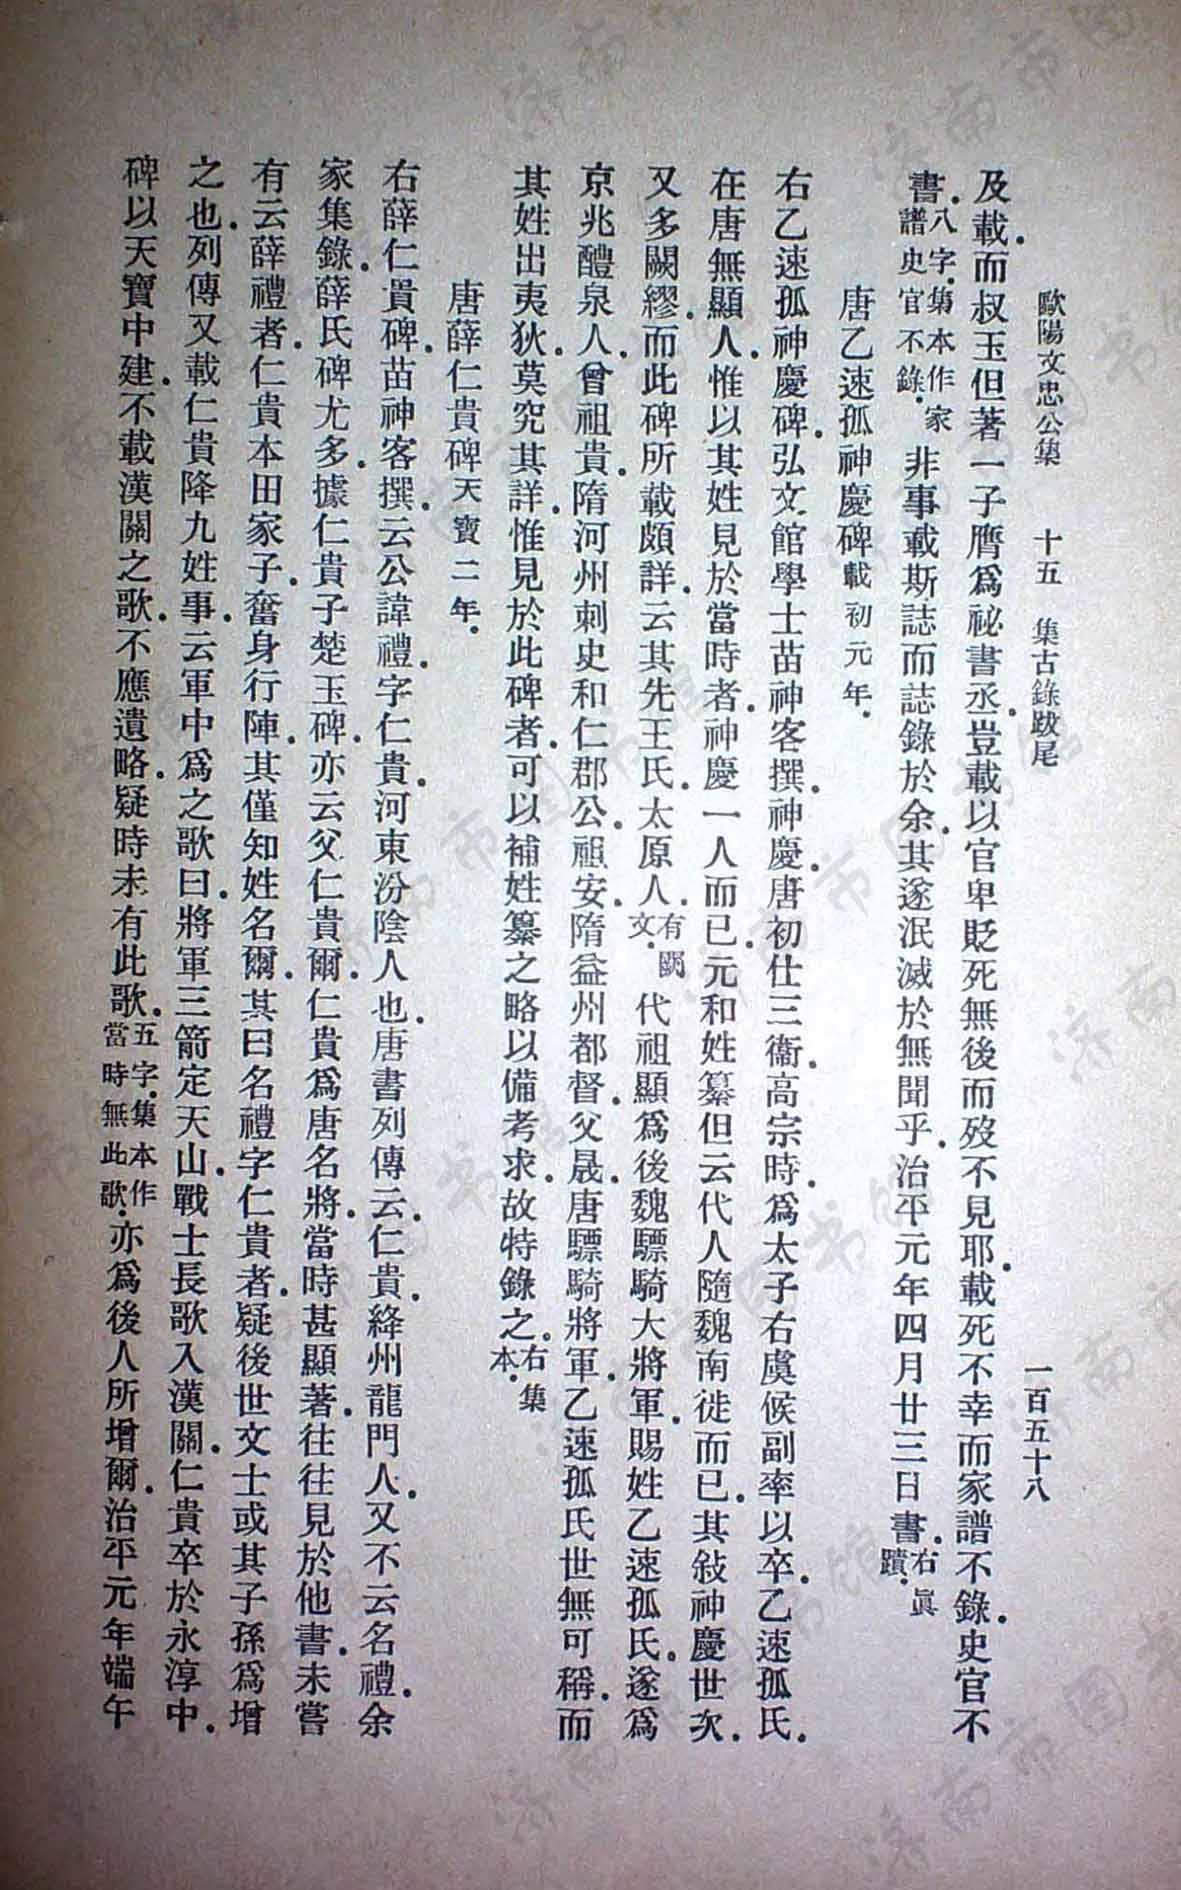 歐陽文忠公集　十五　集古錄跋尾　一百五十八
及載.而叔玉但著一子膺爲祕書丞.豈載以官卑貶死無後而歿不見耶.載死不幸而家譜不錄.史官不
書.八字.集本作家譜史官不錄.非事載斯誌而誌錄於余.其遂泯滅於無聞乎.治平元年四月廿三日書.右眞蹟.
唐乙速孤神慶碑載初元年.
右乙速孤神慶碑.弘文館學士苗神客撰.神慶.唐初仕三衞.高宗時.爲太子右虞候副率以卒.乙速孤氏.
在唐無顯人.惟以其姓見於當時者.神慶一人而已.元和姓纂但云代人隨魏南徙而已.其敍神慶世次.
又多闕繆.而此碑所載頗詳.云其先王氏.太原人.有闕文.代祖顯爲後魏驃騎大將軍.賜姓乙速孤氏.遂爲
京兆醴泉人.曾祖貴.隋河州刺史和仁郡公.祖安.隋益州都督.父晟.唐驃騎將軍.乙速孤氏世無可稱.而
其姓出夷狄.莫究其詳.惟見於此碑者.可以補姓纂之略以備考求.故特錄之.右集本.
唐薛仁貴碑天寶二年.
右薛仁貴碑.苗神客撰.云公諱禮.字仁貴.河東汾陰人也.唐書列傳云.仁貴.絳州龍門人.又不云名禮.余
家集錄.薛氏碑尤多.據仁貴子楚玉碑.亦云父仁貴爾.仁貴爲唐名將.當時甚顯著.往往見於他書.未嘗
有云薛禮者.仁貴本田家子.奮身行陣.其僅知姓名爾.其曰名禮字仁貴者.疑後世文士或其子孫爲增
之也.列傳又載仁貴降九姓事.云軍中爲之歌曰.將軍三箭定天山.戰士長歌入漢關.仁貴卒於永淳中.
碑以天寶中建.不載漢關之歌.不應遺略.疑時未有此歌.五字.集本作當時無此歌.亦爲後人所增爾.治平元年端午